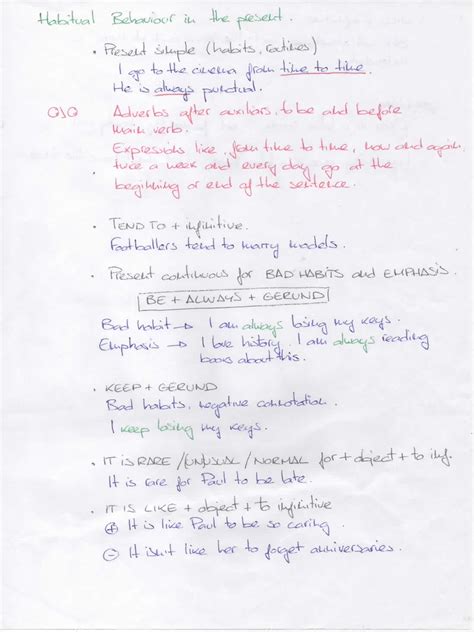 Habitual Behaviour in the present.
• Present simple (habits, routines)
I go to the cinema from time to time.
He is always punctual.
OJO Adverbs after auxiliars, to be and before
main verb.
Expressions like, from time to time, now and again,
twice a week and every day go at the
beginning or end of the sentence.
• TEND TO + infinitive.
Footballers tend to marry models.
• Present continuous for BAD HABITS and EMPHASIS.
BE + ALWAYS + GERUND
Bad habit → I am always losing my keys.
Emphasis → I love history. I am always reading
books about this.
• KEEP + GERUND
Bad habits, negative connotation.
I keep losing my keys.
• IT IS RARE / UNUSUAL / NORMAL for + object + to inf.
It is rare for Paul to be late.
• IT IS LIKE + object + to infinitive
⊕ It is like Paul to be so caring.
⊖ It isn't like her to forget anniversaries.